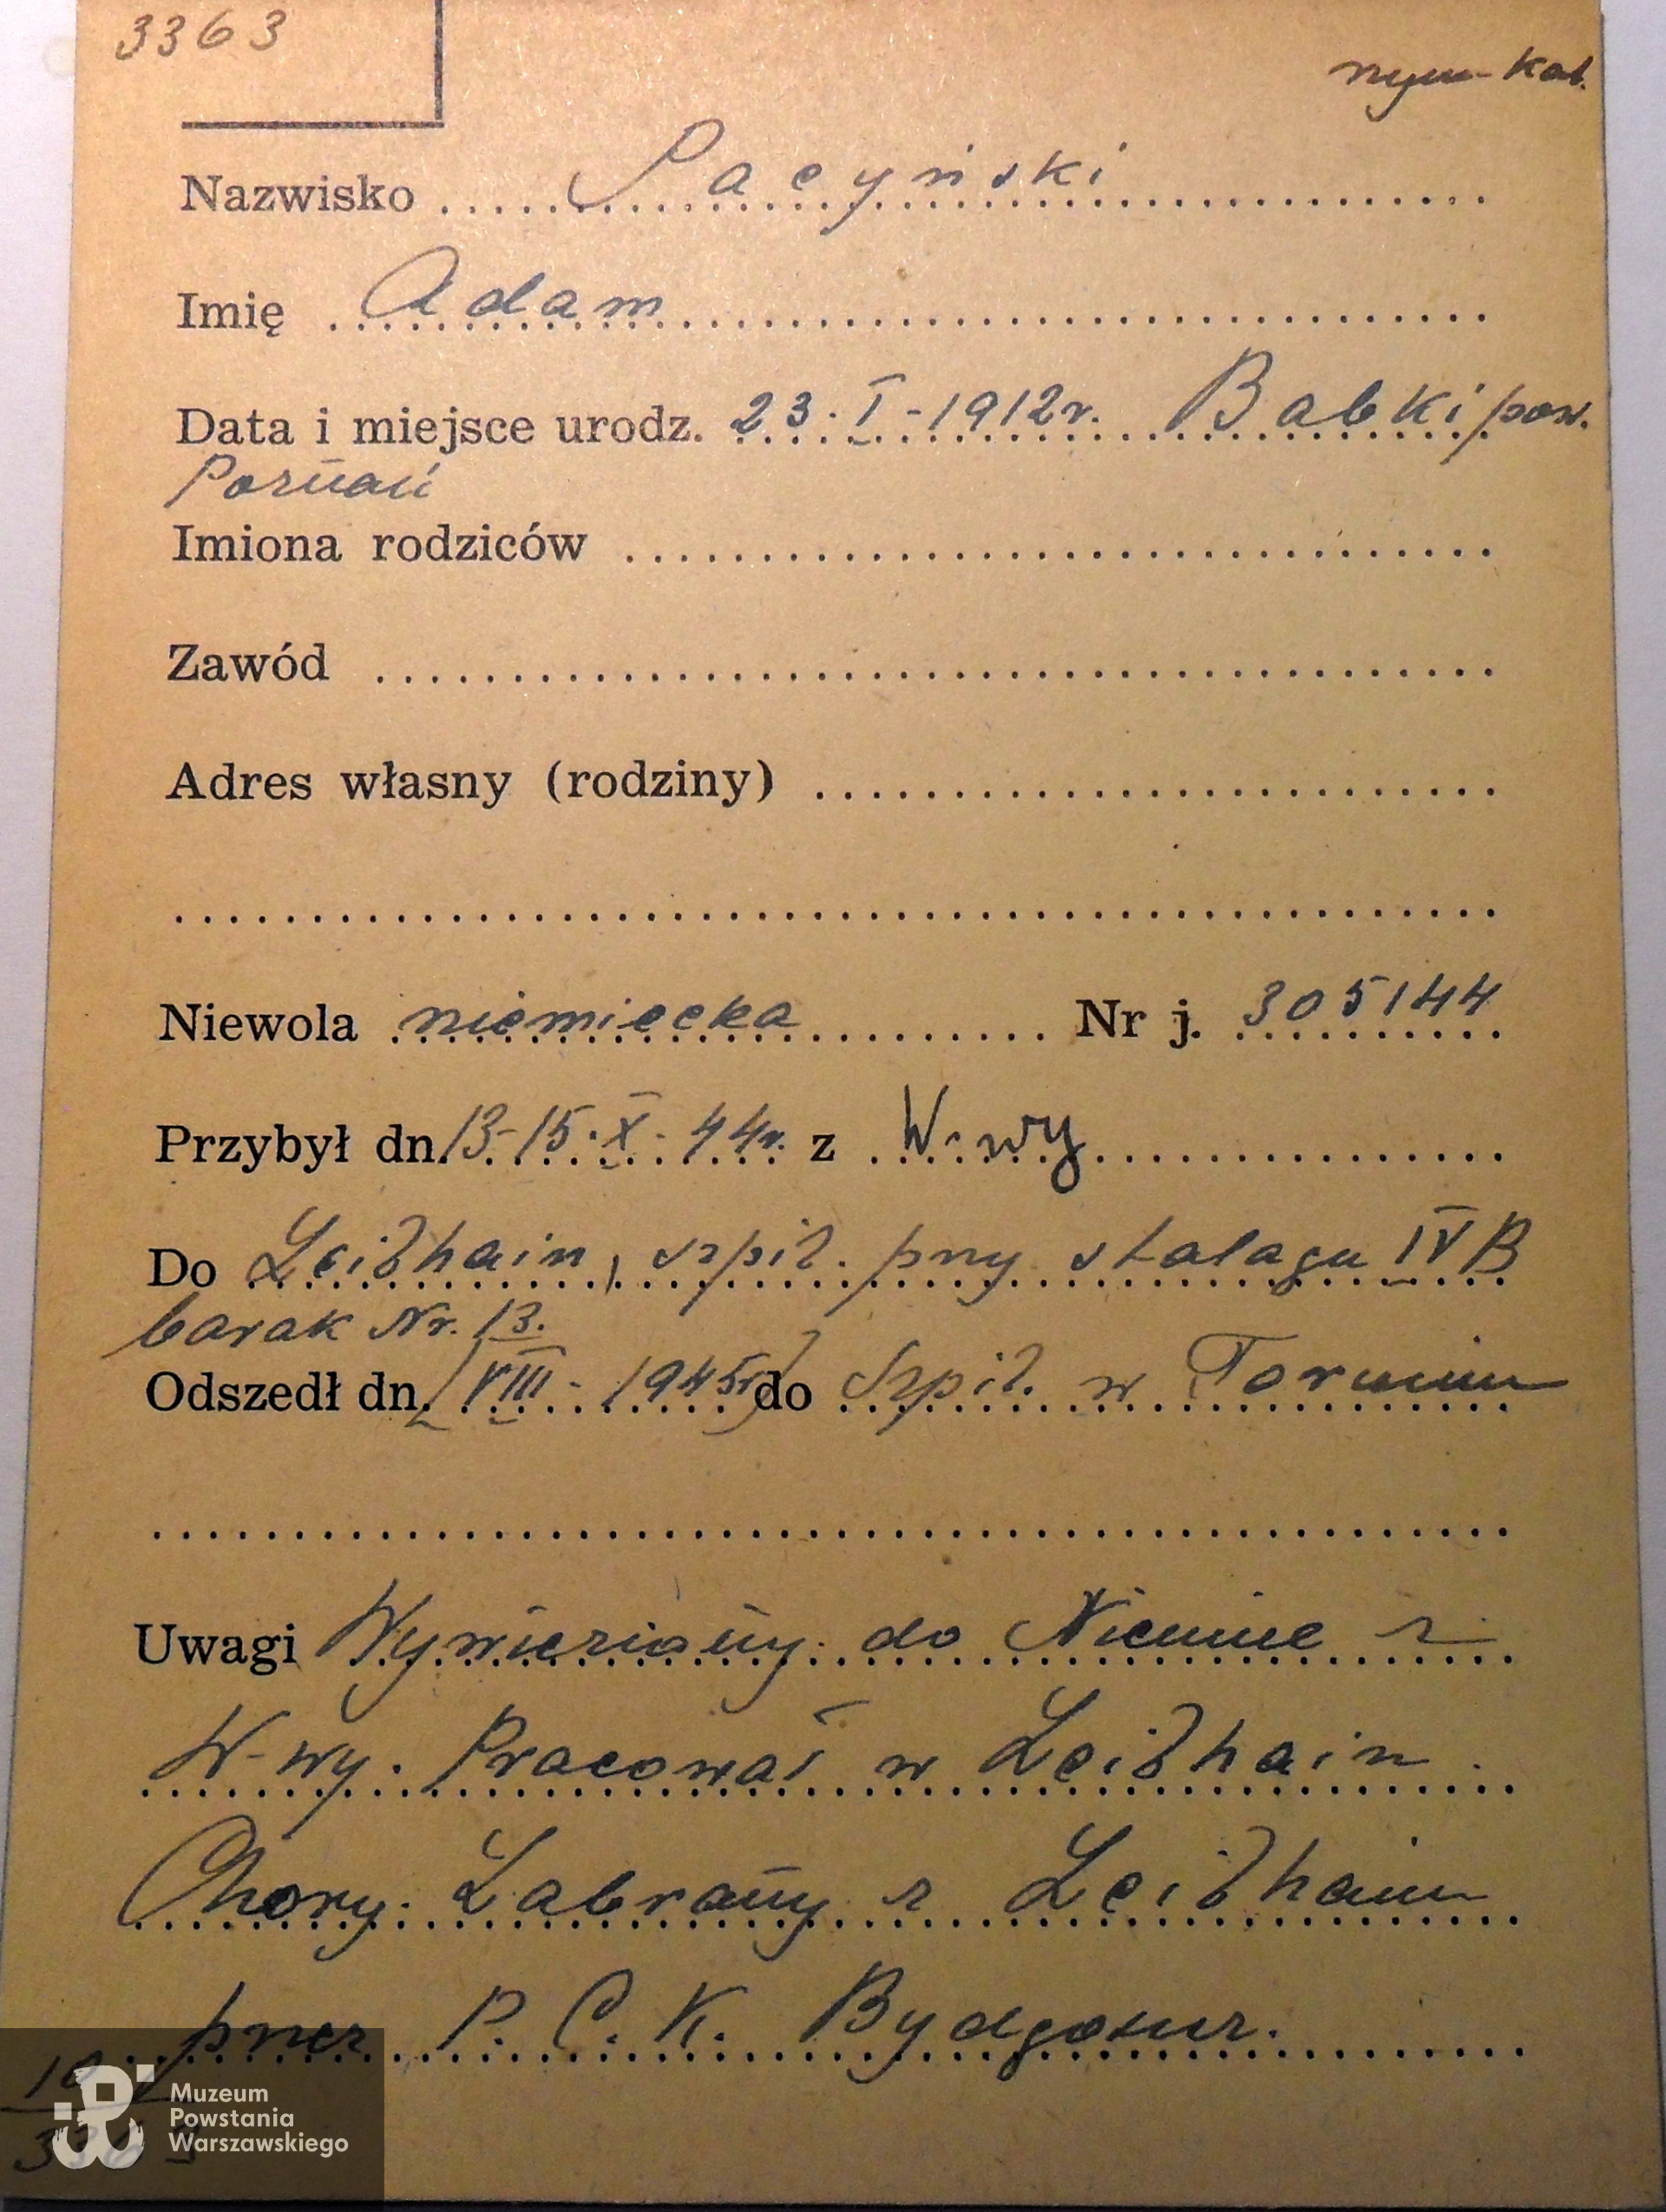 3363
rzym-kat.
Nazwisko Pacyński
Imię Adam
Data i miejsce urodz. 23.I-1912r. Babki/pow.
Poznań
Imiona rodziców
Zawód
Adres własny (rodziny)
Niewola niemiecka Nr j. 305144
Przybył dn. 13-15.X.44r. z W-wy
Do Zeithain, szpit. przy stalagu IV B
barak Nr. 13.
Odszedł dn. (VIII-1945r) do Szpit. w Toruniu
Uwagi Wywieziony do Niemiec z
W-wy. Pracował w Zeithain.
Chory. Zabrany z Zeithain
przez P.C.K. Bydgoszcz.
Muzeum
Powstania
Warszawskiego